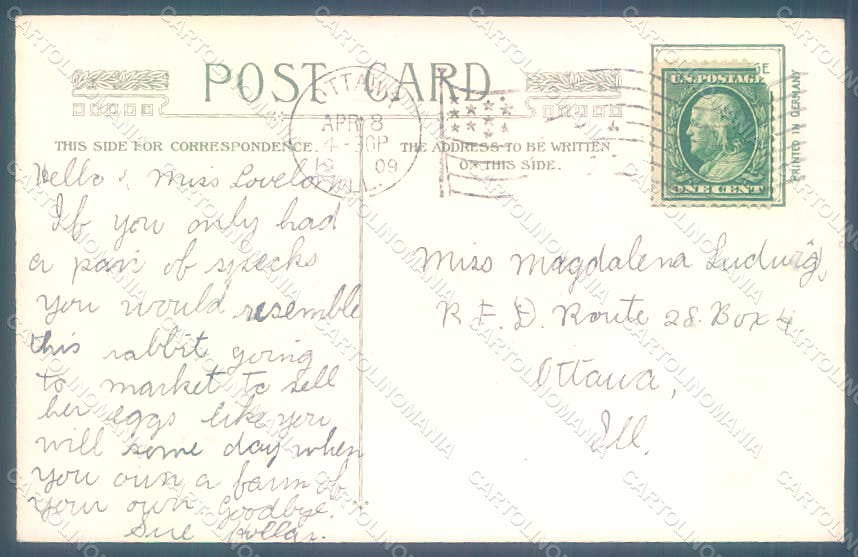 POST CARD
THIS SIDE FOR CORRESPONDENCE.
THE ADDRESS TO BE WRITTEN
ON THIS SIDE.
OTTAWA
APR 8
4-30P
09
ILL.
U.S. POSTAGE
ONE CENT
PRINTED IN GERMANY
Hello, Miss Lovelorn
If you only had
a pair of specks
you would resemble
this rabbit going
to market to sell
her eggs like you
will some day when
you own a farm of
your own Goodbye.
Sue Hollar.
Miss Magdalena Ludwig,
R. F. D. Route 28. Box 4.
Ottawa,
Ill.
CARTOLINOMANIA